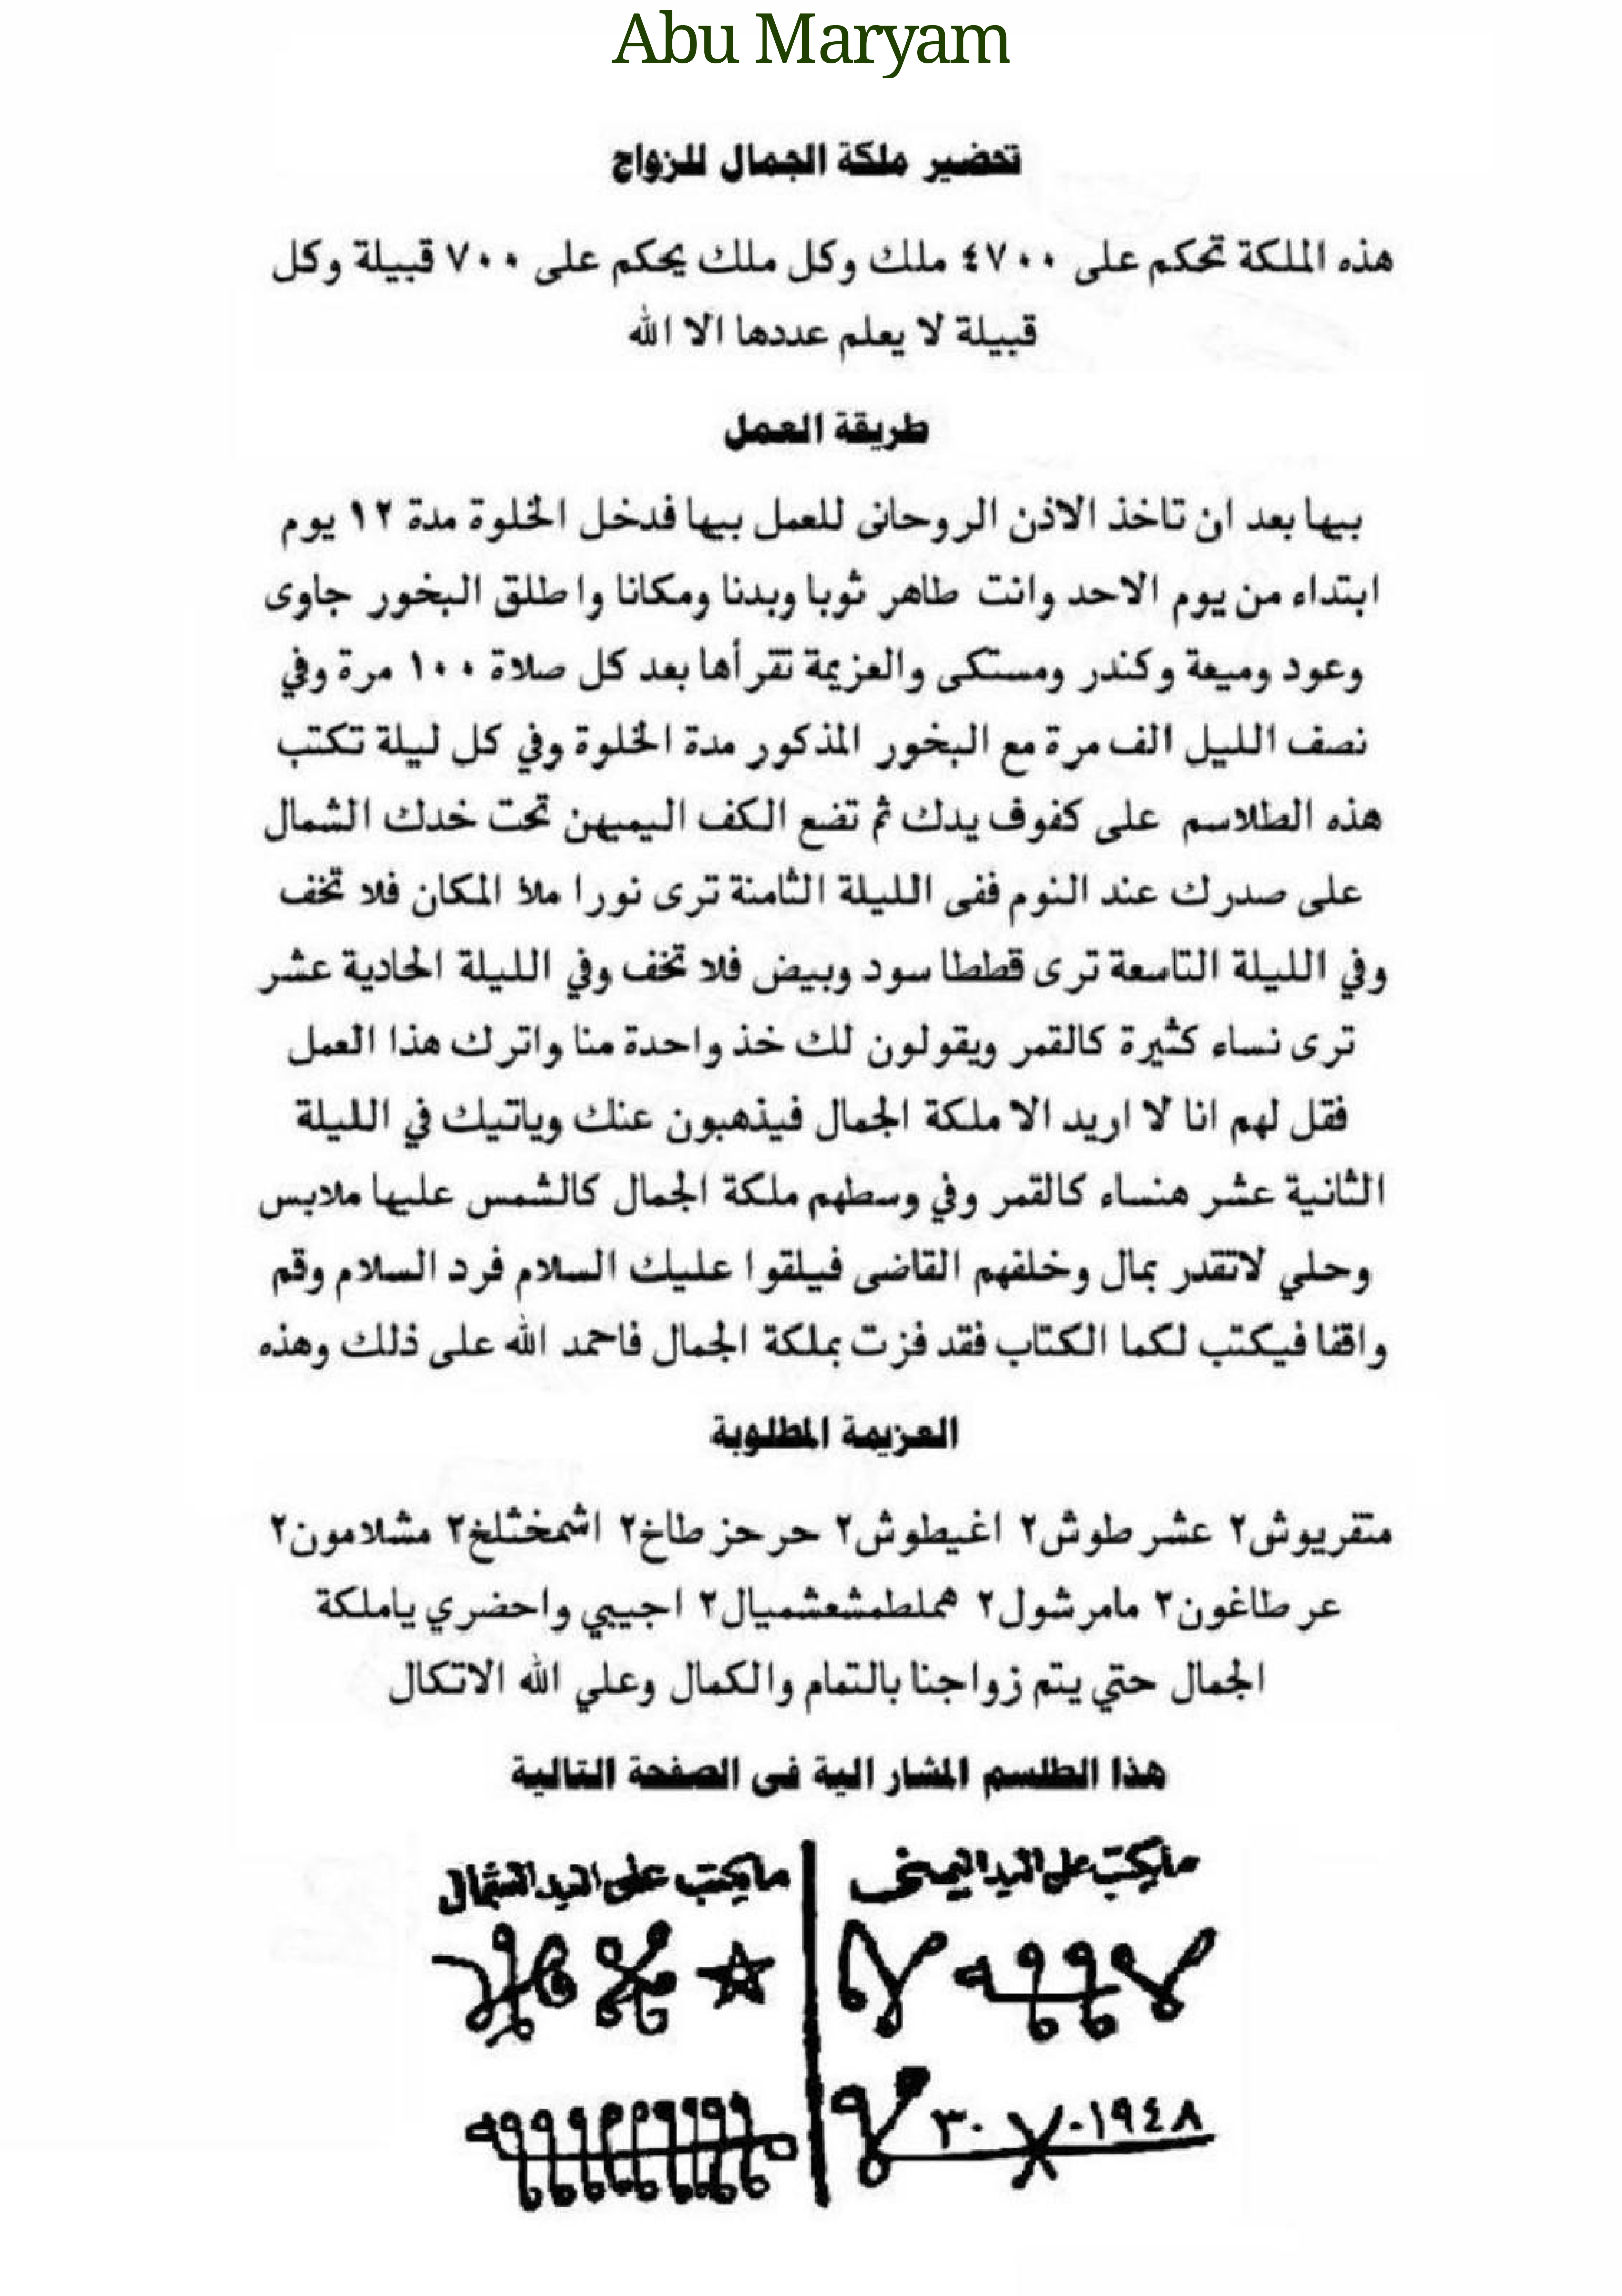 Abu Maryam
تحضير ملكة الجمال للزواج
هذه الملكة تحكم على ٤٧٠٠ ملك وكل ملك يحكم على ٧٠٠ قبيلة وكل
قبيلة لا يعلم عددها الا الله
طريقة العمل
بيها بعد ان تاخذ الاذن الروحانى للعمل بيها فدخل الخلوة مدة ١٢ يوم
ابتداء من يوم الاحد وانت طاهر ثوبا وبدنا ومكانا واطلق البخور جاوى
وعود وميعة وكندر ومستكى والعزيمة تقرأها بعد كل صلاة ١٠٠ مرة وفي
نصف الليل الف مرة مع البخور المذكور مدة الخلوة وفي كل ليلة تكتب
هذه الطلاسم على كفوف يدك ثم تضع الكف اليميهن تحت خدك الشمال
على صدرك عند النوم ففى الليلة الثامنة ترى نورا ملأ المكان فلا تخف
وفي الليلة التاسعة ترى قططا سود وبيض فلا تخف وفي الليلة الحادية عشر
ترى نساء كثيرة كالقمر ويقولون لك خذ واحدة منا واترك هذا العمل
فقل لهم انا لا اريد الا ملكة الجمال فيذهبون عنك وياتيك في الليلة
الثانية عشر هنساء كالقمر وفي وسطهم ملكة الجمال كالشمس عليها ملابس
وحلي لاتقدر بمال وخلفهم القاضى فيلقوا عليك السلام فرد السلام وقم
واقفا فيكتب لكما الكتاب فقد فزت بملكة الجمال فاحمد الله على ذلك وهذه
العزيمة المطلوبة
متقريوش٢ عشر طوش٢ اغيطوش٢ حر حز طاخ٢ اشمخثلخ٢ مشلامون٢
عر طاغون٢ مامرشول٢ هملطمشعشميال٢ اجيبي واحضري ياملكة
الجمال حتي يتم زواجنا بالتمام والكمال وعلي الله الاتكال
هذا الطلسم المشار الية فى الصفحة التالية
مايكتب على اليد اليمنى
مايكتب على اليد الشمال
٣٠ ٠١٩٤٨